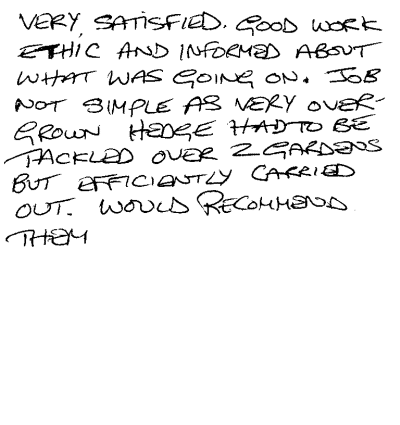 VERY, SATISFIED. GOOD WORK
ETHIC AND INFORMED ABOUT
WHAT WAS GOING ON. JOB
NOT SIMPLE AS VERY OVER-
GROWN HEDGE HAD TO BE
TACKLED OVER 2 GARDENS
BUT EFFICIENTLY CARRIED
OUT. WOULD RECOMMEND
THEM